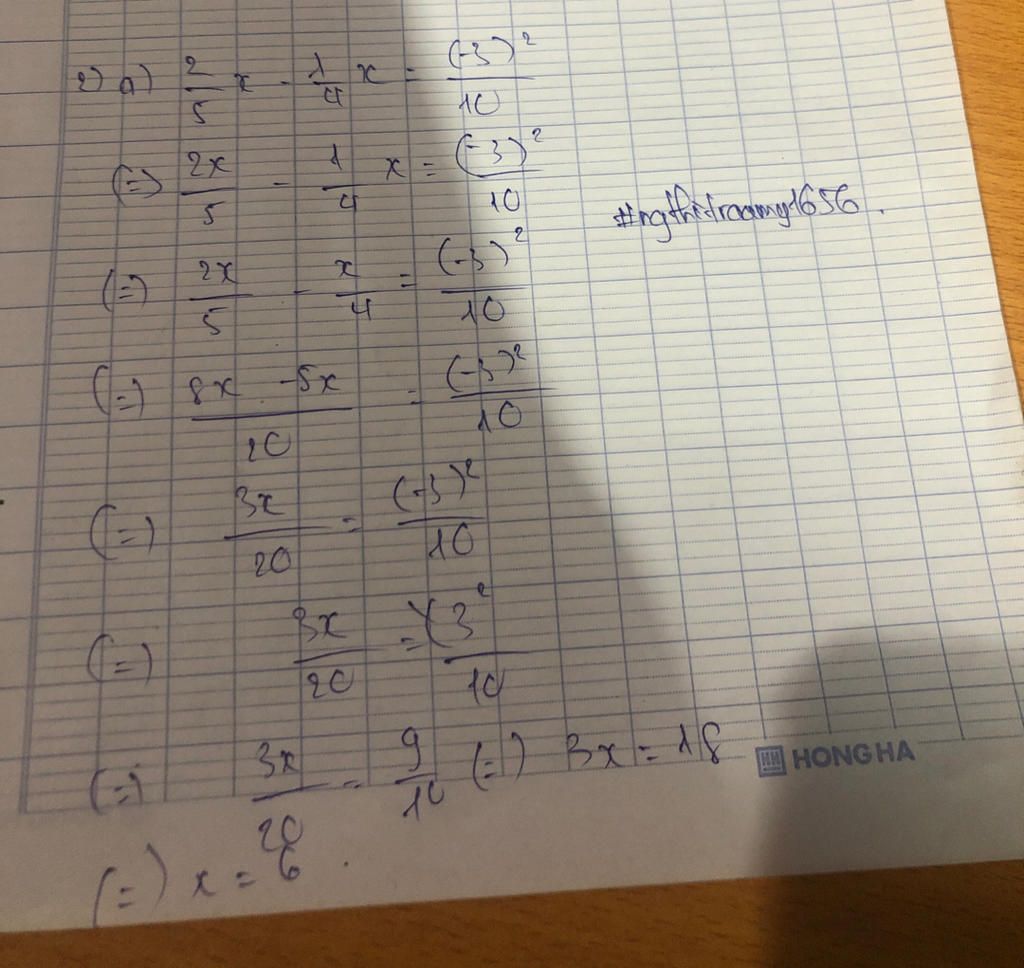 2) a) 2/5 x - 1/4 x = (-3)²/10
(=) 2x/5 - 1/4 x = (-3)²/10
#ngthitraamy1656.
(=) 2x/5 - x/4 = (-3)²/10
(=) 8x - 5x/20 = (-3)²/10
(=) 3x/20 = (-3)²/10
(=) 3x/20 = 3²/10
(=) 3x/20 = 9/10 (=) 3x = 18
HONG HA
(=) x = 6.